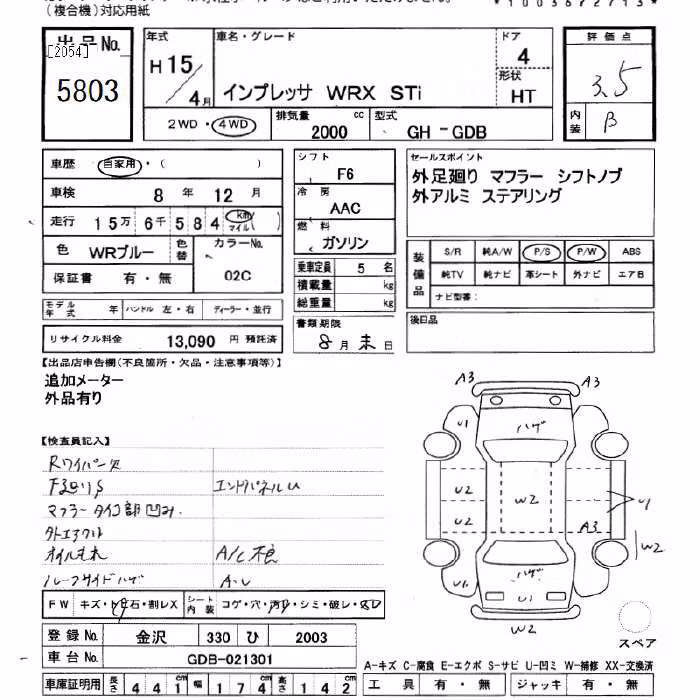 （複合機）対応用紙
出品No.
[2054]
5803
年式
H15/4月
車名・グレード
インプレッサ WRX STi
ドア
4
形状
HT
評価点
3.5
内装
B
2WD・4WD
排気量
2000 cc
型式
GH - GDB
車歴 自家用・( )
車検 8年 12月
走行 15万6千584 km マイル( )
色 WRブルー
色替
カラーNo.
02C
保証書 有・無
シフト
F6
冷房
AAC
燃料
ガソリン
乗車定員 5 名
積載量 kg
総重量 kg
セールスポイント
外足廻り マフラー シフトノブ
外アルミ ステアリング
装備品
S/R 純A/W P/S P/W ABS
純TV 純ナビ 革シート 外ナビ エアB
ナビ型番：
モデル年式 年 ハンドル 左・右 ディーラー・並行
リサイクル料金 13,090 円 預託済
書類期限
8月末日
後日品
【出品店申告欄(不良箇所・欠品・注意事項等)】
追加メーター
外品有り
【検査員記入】
Rワイパー欠
F廻りS
エンドパネルU
マフラー タイコ部凹み.
外エアクル
オイルもれ
A/C不良
ルーフサイドハゲ
A-U
FW キズ・飛石・割レX
シート内装 コゲ・穴・汚レ・シミ・破レ・スレ
登録No. 金沢 330 ひ 2003
車台No. GDB-021301
車庫証明用 長さ 441cm 幅 174cm 高さ 142cm
A3
A3
U1
ハゲ
U2
W2
U1
U2
A3
W2
U1
ハゲ
U1
W2
スペア
A-キズ C-腐食 E-エクボ S-サビ U-凹ミ W-補修 XX-交換済
工具 有・無 ジャッキ 有・無